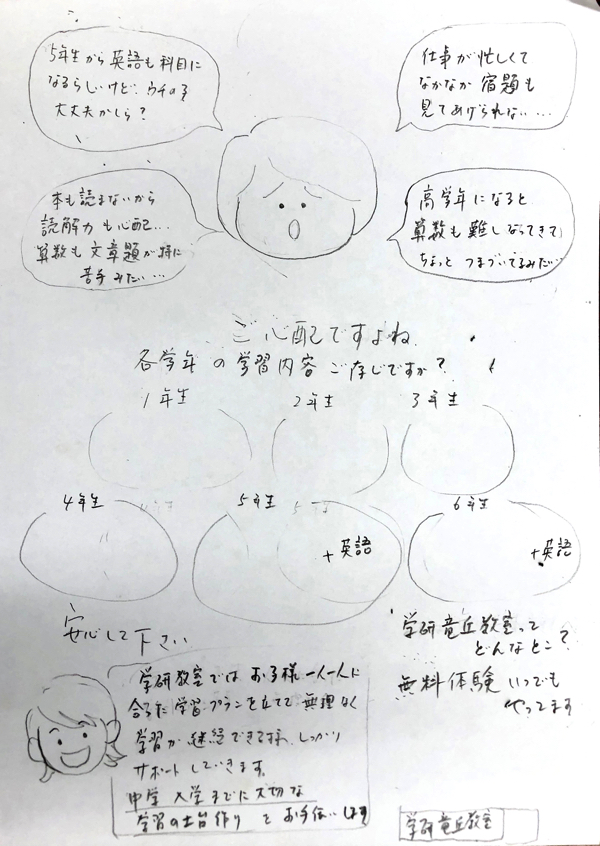 5年生から英語も科目に
なるらしいけど、ウチの子
大丈夫かしら?
仕事が忙しくて
なかなか宿題も
見てあげられない...
本も読まないから
読解力も心配...
算数も文章題が特に
苦手みたい...
高学年になると
算数も難しくなってきて
ちょっとつまづいてるみたい...
ご心配ですよね
各学年の学習内容ご存じですか?
1年生
2年生
3年生
4年生
5年生
6年生
+英語
+英語
安心して下さい
学研教室では お子様一人一人に
合った学習プランを立てて無理なく
学習が継続できる様、しっかり
サポートしていきます。
中学入学までに大切な
学習の土台作りをお手伝いします
学研竜丘教室って
どんなとこ?
無料体験いつでも
やってます
学研竜丘教室